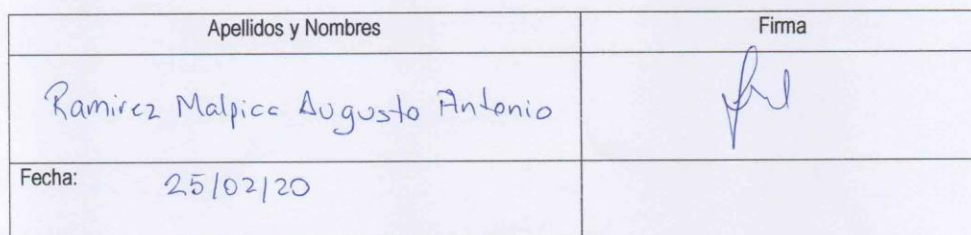 Apellidos y Nombres Firma
Ramirez Malpica Augusto Antonio
Fecha: 25/02/20